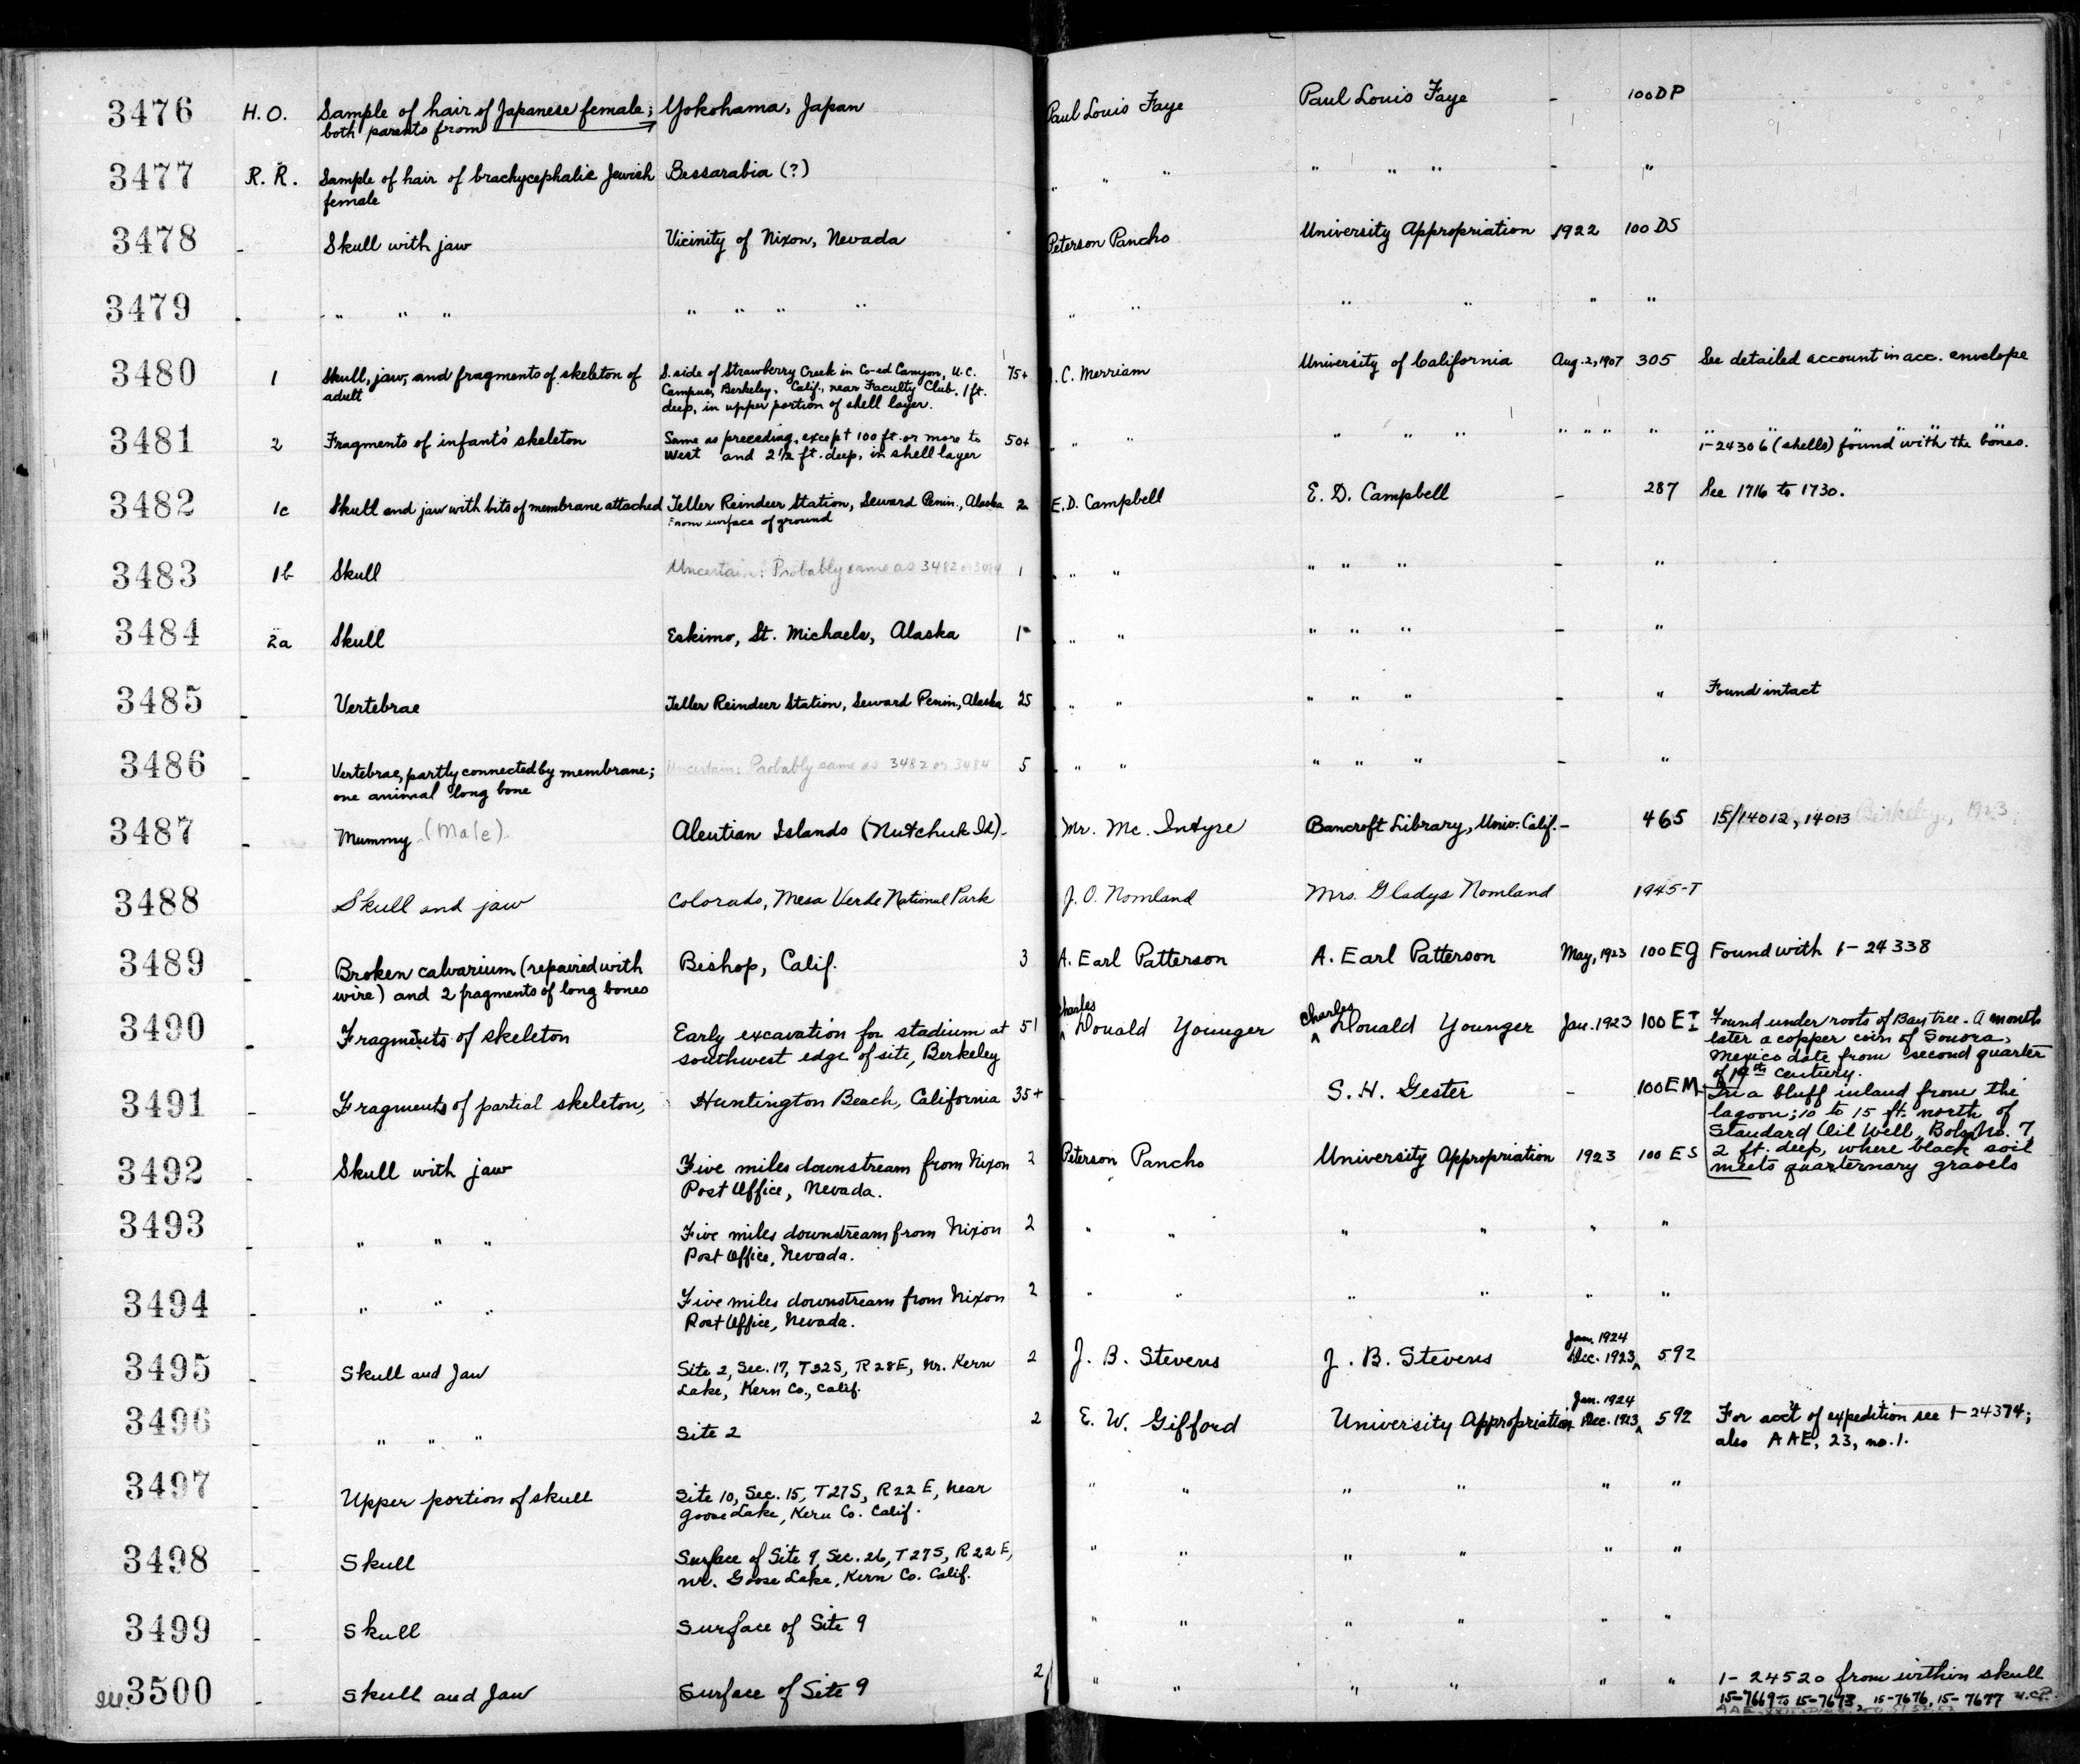 3476 H.O. Sample of hair of Japanese female; Yokohama, Japan Paul Louis Faye Paul Louis Faye - 100DP
both parents from
3477 R.R. Sample of hair of brachycephalic Jewish Bessarabia (?) " " " " " " - "
female
3478 - Skull with jaw Vicinity of Nixon, Nevada Peterson Pancho University Appropriation 1922 100 DS
3479 - " " " " " " " " " " " " "
3480 1 Skull, jaw, and fragments of skeleton of S. side of Strawberry Creek in Co-ed Canyon, U.C. 75+ J.C. Merriam University of California Aug. 2, 1907 305 See detailed account in acc. envelope
adult Campus, Berkeley, Calif., near Faculty Club. 1 ft.
deep, in upper portion of shell layer.
3481 2 Fragments of infant's skeleton Same as preceding, except 100 ft. or more to 50+ " " " " " " " " " " " " " "
west and 2 1/2 ft. deep, in shell layer 1-24306 (shells) found with the bones.
3482 1c Skull and jaw with bits of membrane attached Teller Reindeer Station, Seward Penin., Alaska 2 E.D. Campbell E. D. Campbell - 287 See 1716 to 1730.
From surface of ground
3483 1b Skull Uncertain: Probably same as 3482 or 3484 1 " " " " " - "
3484 2a Skull Eskimo, St. Michaels, Alaska 1 " " " " " - "
3485 - Vertebrae Teller Reindeer Station, Seward Penin., Alaska 25 " " " " " - " Found intact
3486 - Vertebrae, partly connected by membrane; Uncertain: Probably same as 3482 or 3484 5 " " " " " - "
one animal long bone
3487 Mummy (Male). Aleutian Islands (Nutchuk Id). Mr. Mc. Intyre Bancroft Library, Univ. Calif. - 465 15/14012, 14013 Berkeley, 1923
3488 Skull and jaw Colorado, Mesa Verde National Park J. O. Nomland Mrs. Gladys Nomland 1945-T
3489 - Broken calvarium (repaired with Bishop, Calif. 3 A. Earl Patterson A. Earl Patterson May, 1923 100 EG Found with 1-24338
wire) and 2 fragments of long bones
3490 - Fragments of skeleton Early excavation for stadium at 51 Charles Donald Younger Charles Donald Younger Jan. 1923 100 EI Found under roots of Bay tree. A month
southwest edge of site, Berkeley later a copper coin of Sonora,
Mexico date from second quarter
of 19th century.
3491 - Fragments of partial skeleton, Huntington Beach, California 35+ - S. H. Gester - 100EM In a bluff inland from the
lagoon; 10 to 15 ft. north of
Standard Oil Well, Bolsa No. 7,
3492 - Skull with jaw Five miles downstream from Nixon 2 Peterson Pancho University Appropriation 1923 100 ES 2 ft. deep, where black soil
Post Office, Nevada. meets quarternary gravels
3493 - " " " Five miles downstream from Nixon 2 " " " " " "
Post Office, Nevada.
3494 - " " " Five miles downstream from Nixon 2 " " " " " "
Post Office, Nevada.
Jan. 1924
3495 - Skull and Jaw Site 2, Sec. 17, T32S, R28E, Nr. Kern 2 J. B. Stevens J. B. Stevens Dec. 1923 592
Lake, Kern Co., Calif.
Jan. 1924
3496 - " " " Site 2 2 E. W. Gifford University Appropriation Dec. 1923 592 For acc't of expedition see 1-24374;
also AAE, 23, no. 1.
3497 - Upper portion of skull Site 10, Sec. 15, T27S, R22E, near " " " " " "
Goose Lake, Kern Co. Calif.
3498 - Skull Surface of Site 9, Sec. 26, T27S, R22E, " " " " " "
nr. Goose Lake, Kern Co. Calif.
3499 - Skull Surface of Site 9 " " " " " "
3500 - Skull and Jaw Surface of Site 9 2 " " " " " " 1-24520 from within skull
15-7669 to 15-7673, 15-7676, 15-7677